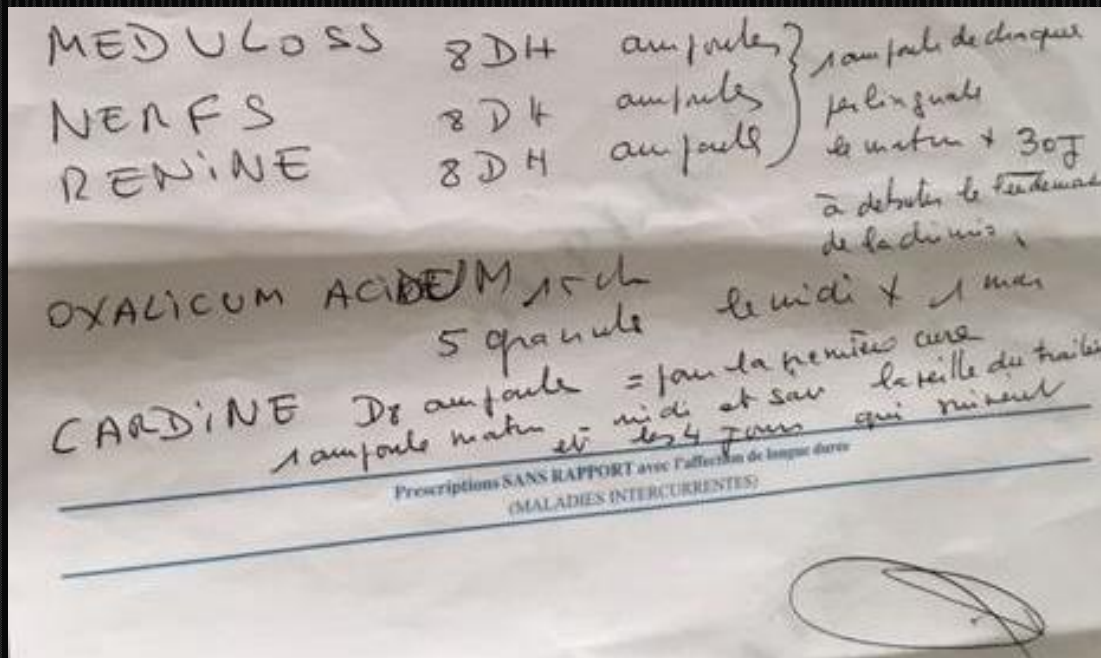 MEDULOSS 8DH ampoules } 1 ampoule de chaque
perlinguale
NERFS 8DH ampoules
le matin x 30J
RENINE 8DH ampoule
à debuter le lendemain
de la chimio
OXALICUM ACIDUM 15ch
5 granule le midi x 1 mois
CARDINE D8 ampoule = pour la première cure
1 ampoule matin midi et soir la veille du
et les 4 jours qui suivent
Prescriptions SANS RAPPORT avec l'affection de longue durée
(MALADIES INTERCURRENTES)